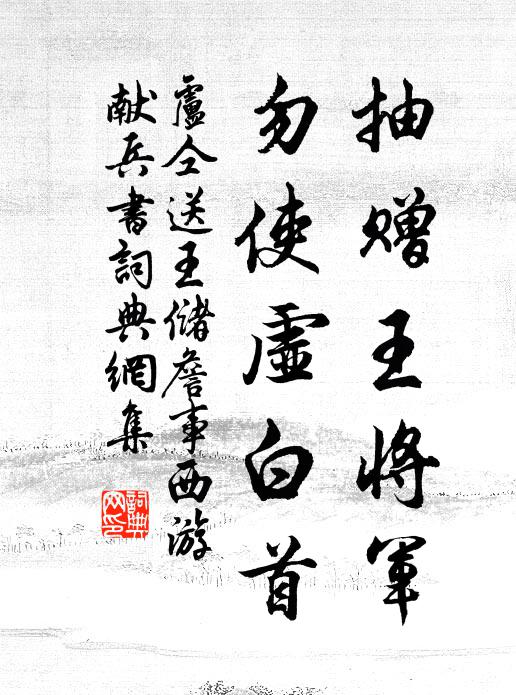 抽赠王將軍
勿使虛白首
盧仝送王儲詹事西游
献兵書詞典網集
詞典
网印